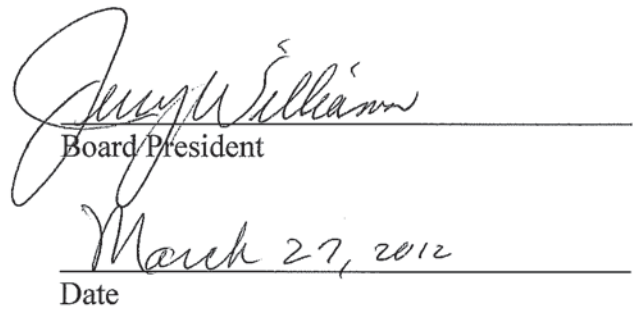 Jerry Williams
Board President
March 27, 2012
Date